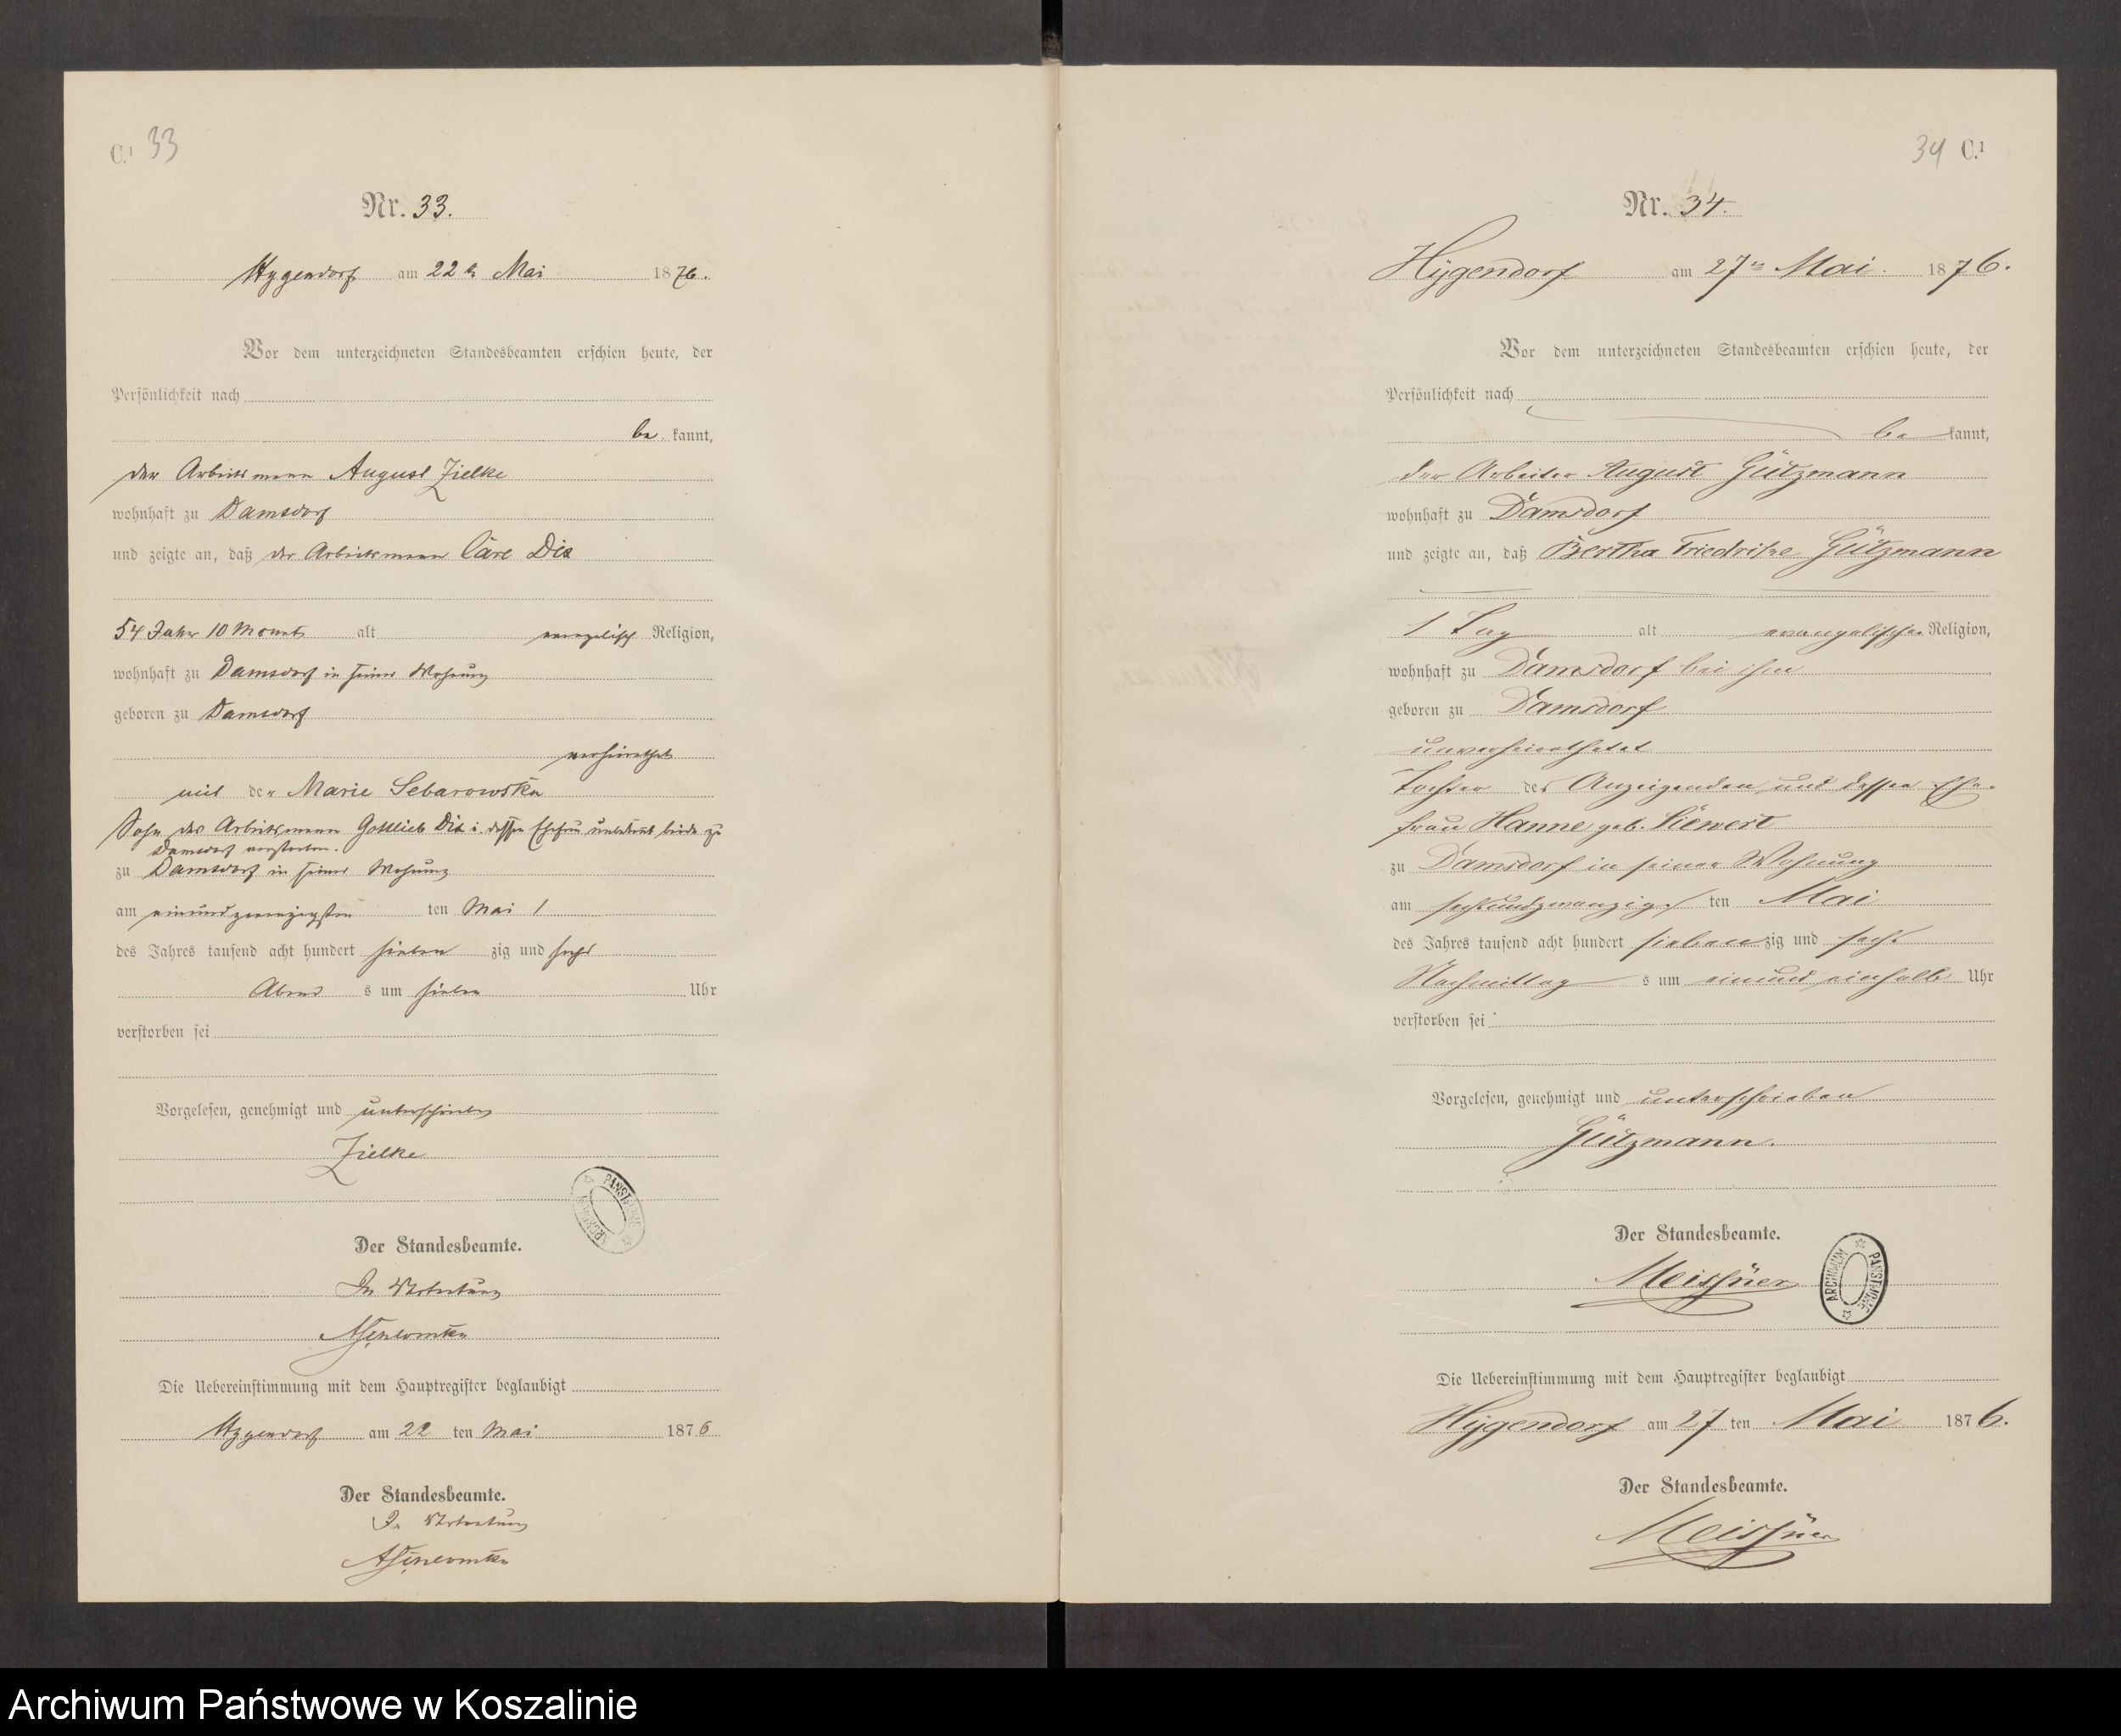 C.1 33
Nr. 33.
Hygendorf am 22 ten Mai 1876.
Vor dem unterzeichneten Standesbeamten erschien heute, der
Persönlichkeit nach
be kannt,
der Arbeitsmann August Zielke
wohnhaft zu Damsdorf
und zeigte an, daß der Arbeitsmann Carl
54 Jahr 10 Monat alt evangelisch Religion,
wohnhaft zu Damsdorf in seiner Wohnung
geboren zu Damsdorf
verheirathet
mit der Marie Sebarowska
Sohn des Arbeitsmann Gottlieb dessen Ehefrau unbekannt beide zu
Damsdorf verstorben.
zu Damsdorf in seiner Wohnung
am einundzwanzigsten ten Mai
des Jahres tausend acht hundert sieben zig und sechs
Abend s um sieben Uhr
verstorben sei
Vorgelesen, genehmigt und unterschrieben
Zielke
ARCHIWUM PAŃSTWOWE
Der Standesbeamte.
In Vertretung
Die Uebereinstimmung mit dem Hauptregister beglaubigt
Hygendorf am 22 ten Mai 1876
Der Standesbeamte.
In Vertretung
34 C.1
Nr. 34.
Hygendorf am 27ten Mai. 1876.
Vor dem unterzeichneten Standesbeamten erschien heute, der
Persönlichkeit nach
be kannt,
der Arbeiter August Gützmann
wohnhaft zu Damsdorf
und zeigte an, daß Bertha Friedrike Gützmann
1 Tag alt evangelischer Religion,
wohnhaft zu Damsdorf bei ihm
geboren zu Damsdorf
unverheirathet
Tochter des Anzeigenden und dessen Ehe-
frau Hanne geb. Siewert
zu Damsdorf in seiner Wohnung
am sechsundzwanzigs ten Mai
des Jahres tausend acht hundert sieben zig und sechs
Nachmittag s um einundeinhalb Uhr
verstorben sei
Vorgelesen, genehmigt und unterschrieben
Gützmann.
Der Standesbeamte.
Meissner
ARCHIWUM PAŃSTWOWE
Die Uebereinstimmung mit dem Hauptregister beglaubigt
Hygendorf am 27 ten Mai 1876.
Der Standesbeamte.
Meissner
Archiwum Państwowe w Koszalinie